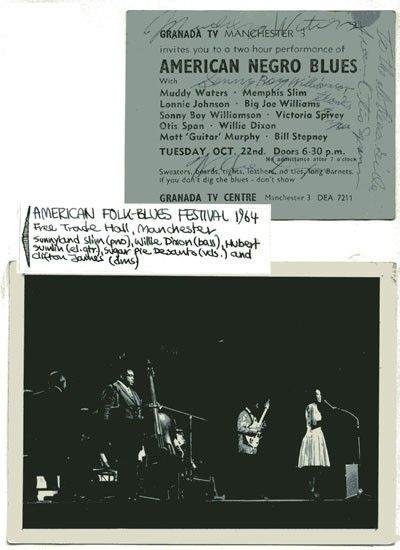 Muddy Waters
GRANADA TV MANCHESTER 3
invites you to a two hour performance of
AMERICAN NEGRO BLUES
With
Sonny Boy Williamson
Muddy Waters · Memphis Slim
Lonnie Johnson · Big Joe Williams
Sonny Boy Williamson · Victoria Spivey
Otis Span · Willie Dixon
Matt 'Guitar' Murphy · Bill Stepney
TUESDAY, OCT. 22nd. Doors 6-30 p.m.
No admittance after 7 o'clock
Sweaters, beards, tights, leathers, no ties, long Barnets,
if you don't dig the blues - don't show
GRANADA TV CENTRE Manchester 3 DEA 7211
AMERICAN FOLK-BLUES FESTIVAL 1964
Free Trade Hall, Manchester
Sunnyland Slim (pno), Willie Dixon (bass), Hubert
Sumlin (el.gtr), Sugar Pie Desanto (vcls.) and
Clifton James (dms)